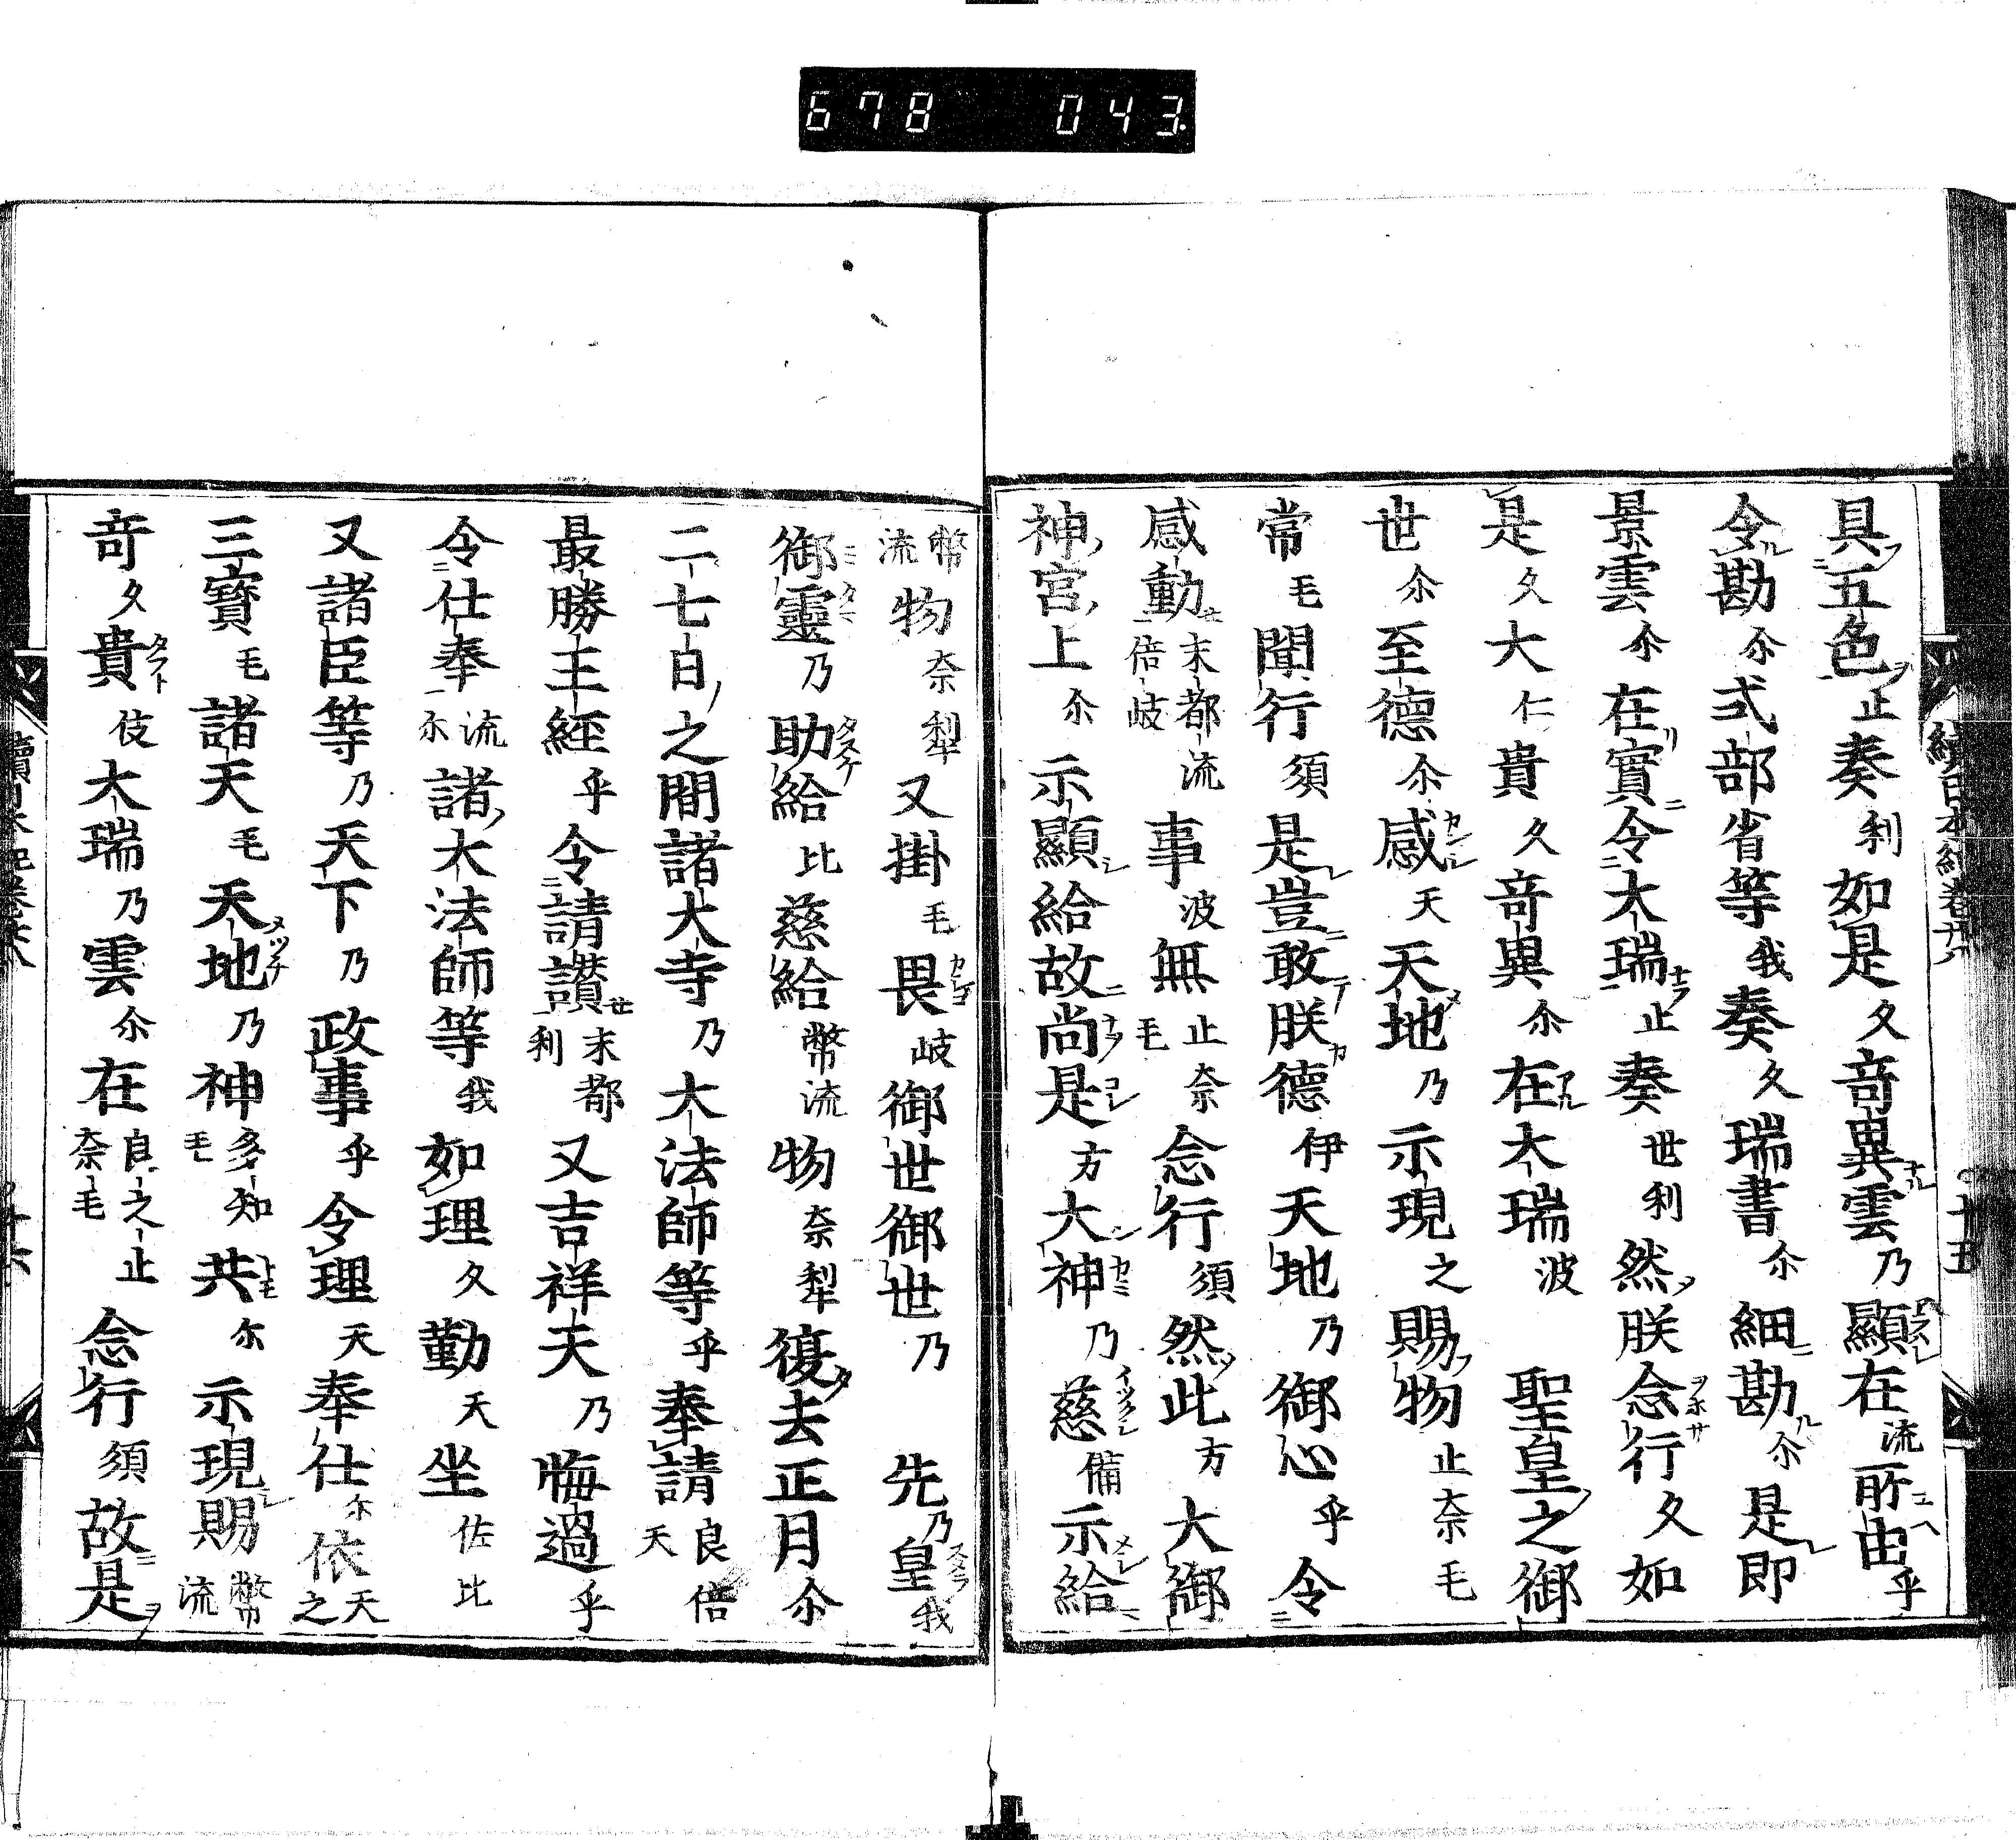 678 043
具五色止奏利如是久竒異雲乃顯在流所由乎
令勘尓式部省等我奏久瑞書尓細勘尓是即
景雲尓在實令大瑞止奏世利然朕念行久如
是久大仁貴久竒異尓在大瑞波 聖皇之御
世尓至德尓感天天地乃示現之賜物止奈毛
常毛聞行須是豈敢朕德伊天地乃御心乎令
感動末都流倍岐事波無止奈毛念行須然此方大御
神宮上尓示顯給故尚是方大神乃慈備示給
幣流物奈犁又掛毛畏岐御世御世乃 先乃皇我
御靈乃助給比慈給幣流物奈犁復去正月尓
二七日之間諸大寺乃大法師等乎奉請良倍天
最勝王經乎令請讃末都利又吉祥天乃悔過乎
令仕奉流尓諸大法師等我如理久勤天坐佐比
又諸臣等乃天下乃政事乎令理天奉仕尓依天之
三寶毛諸天毛天地乃神多知毛共尓示現賜幣流
竒久貴伎大瑞乃雲尓在良之止奈毛念行須故是